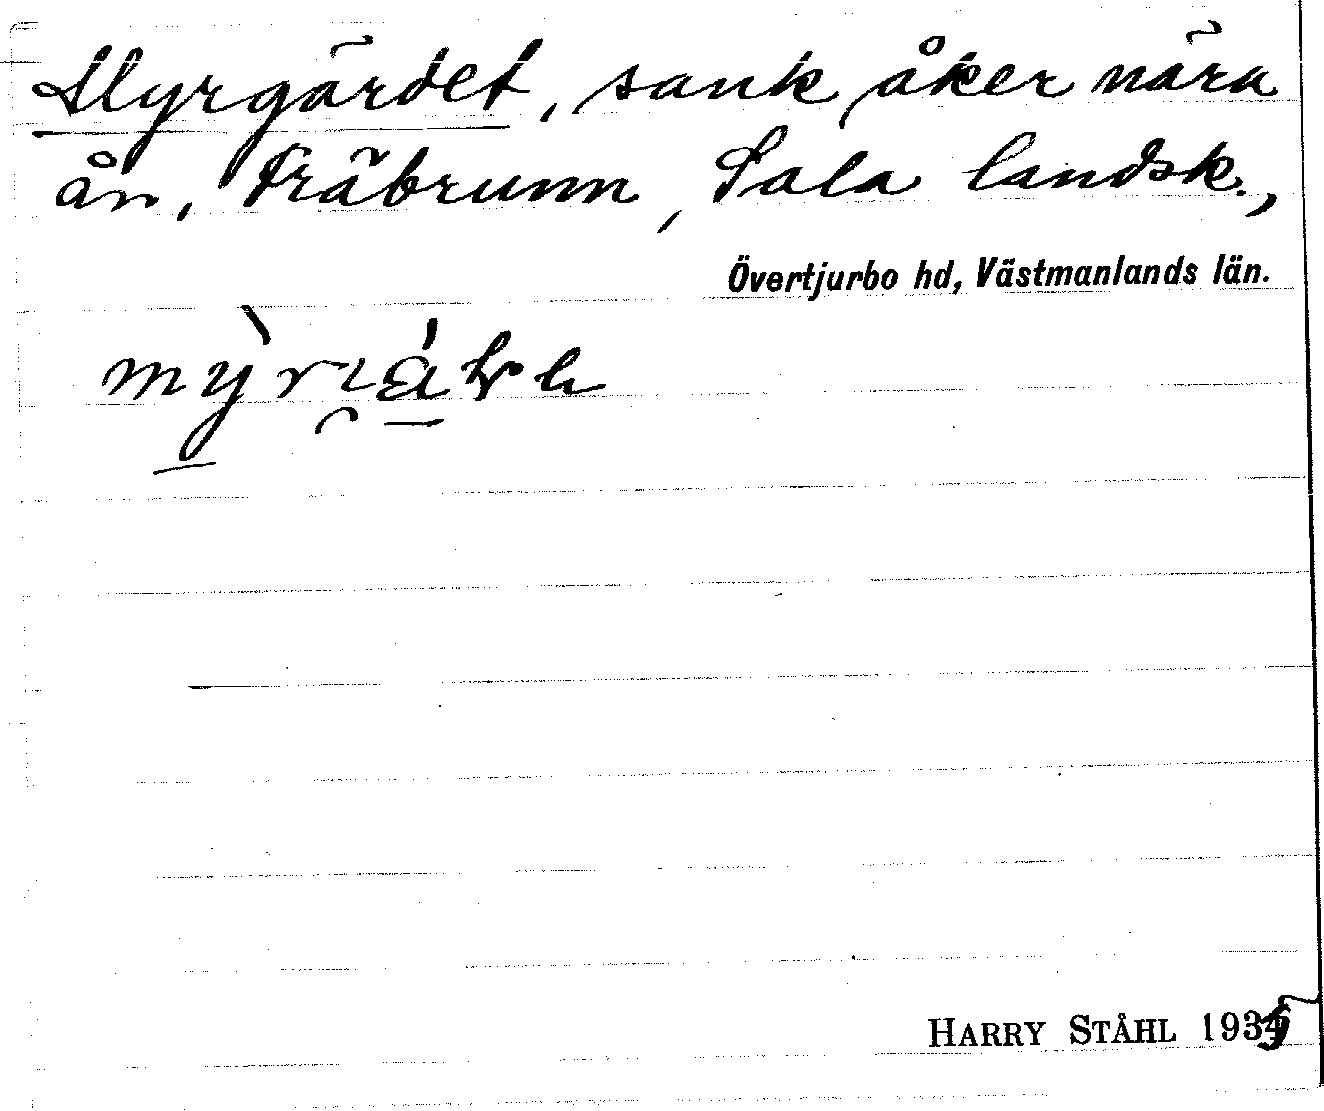 Myrgärdet, sank åker nära
ån, Träbrunn, Sala landsk.,
Övertjurbo hd, Västmanlands län.
HARRY STÅHL 1935